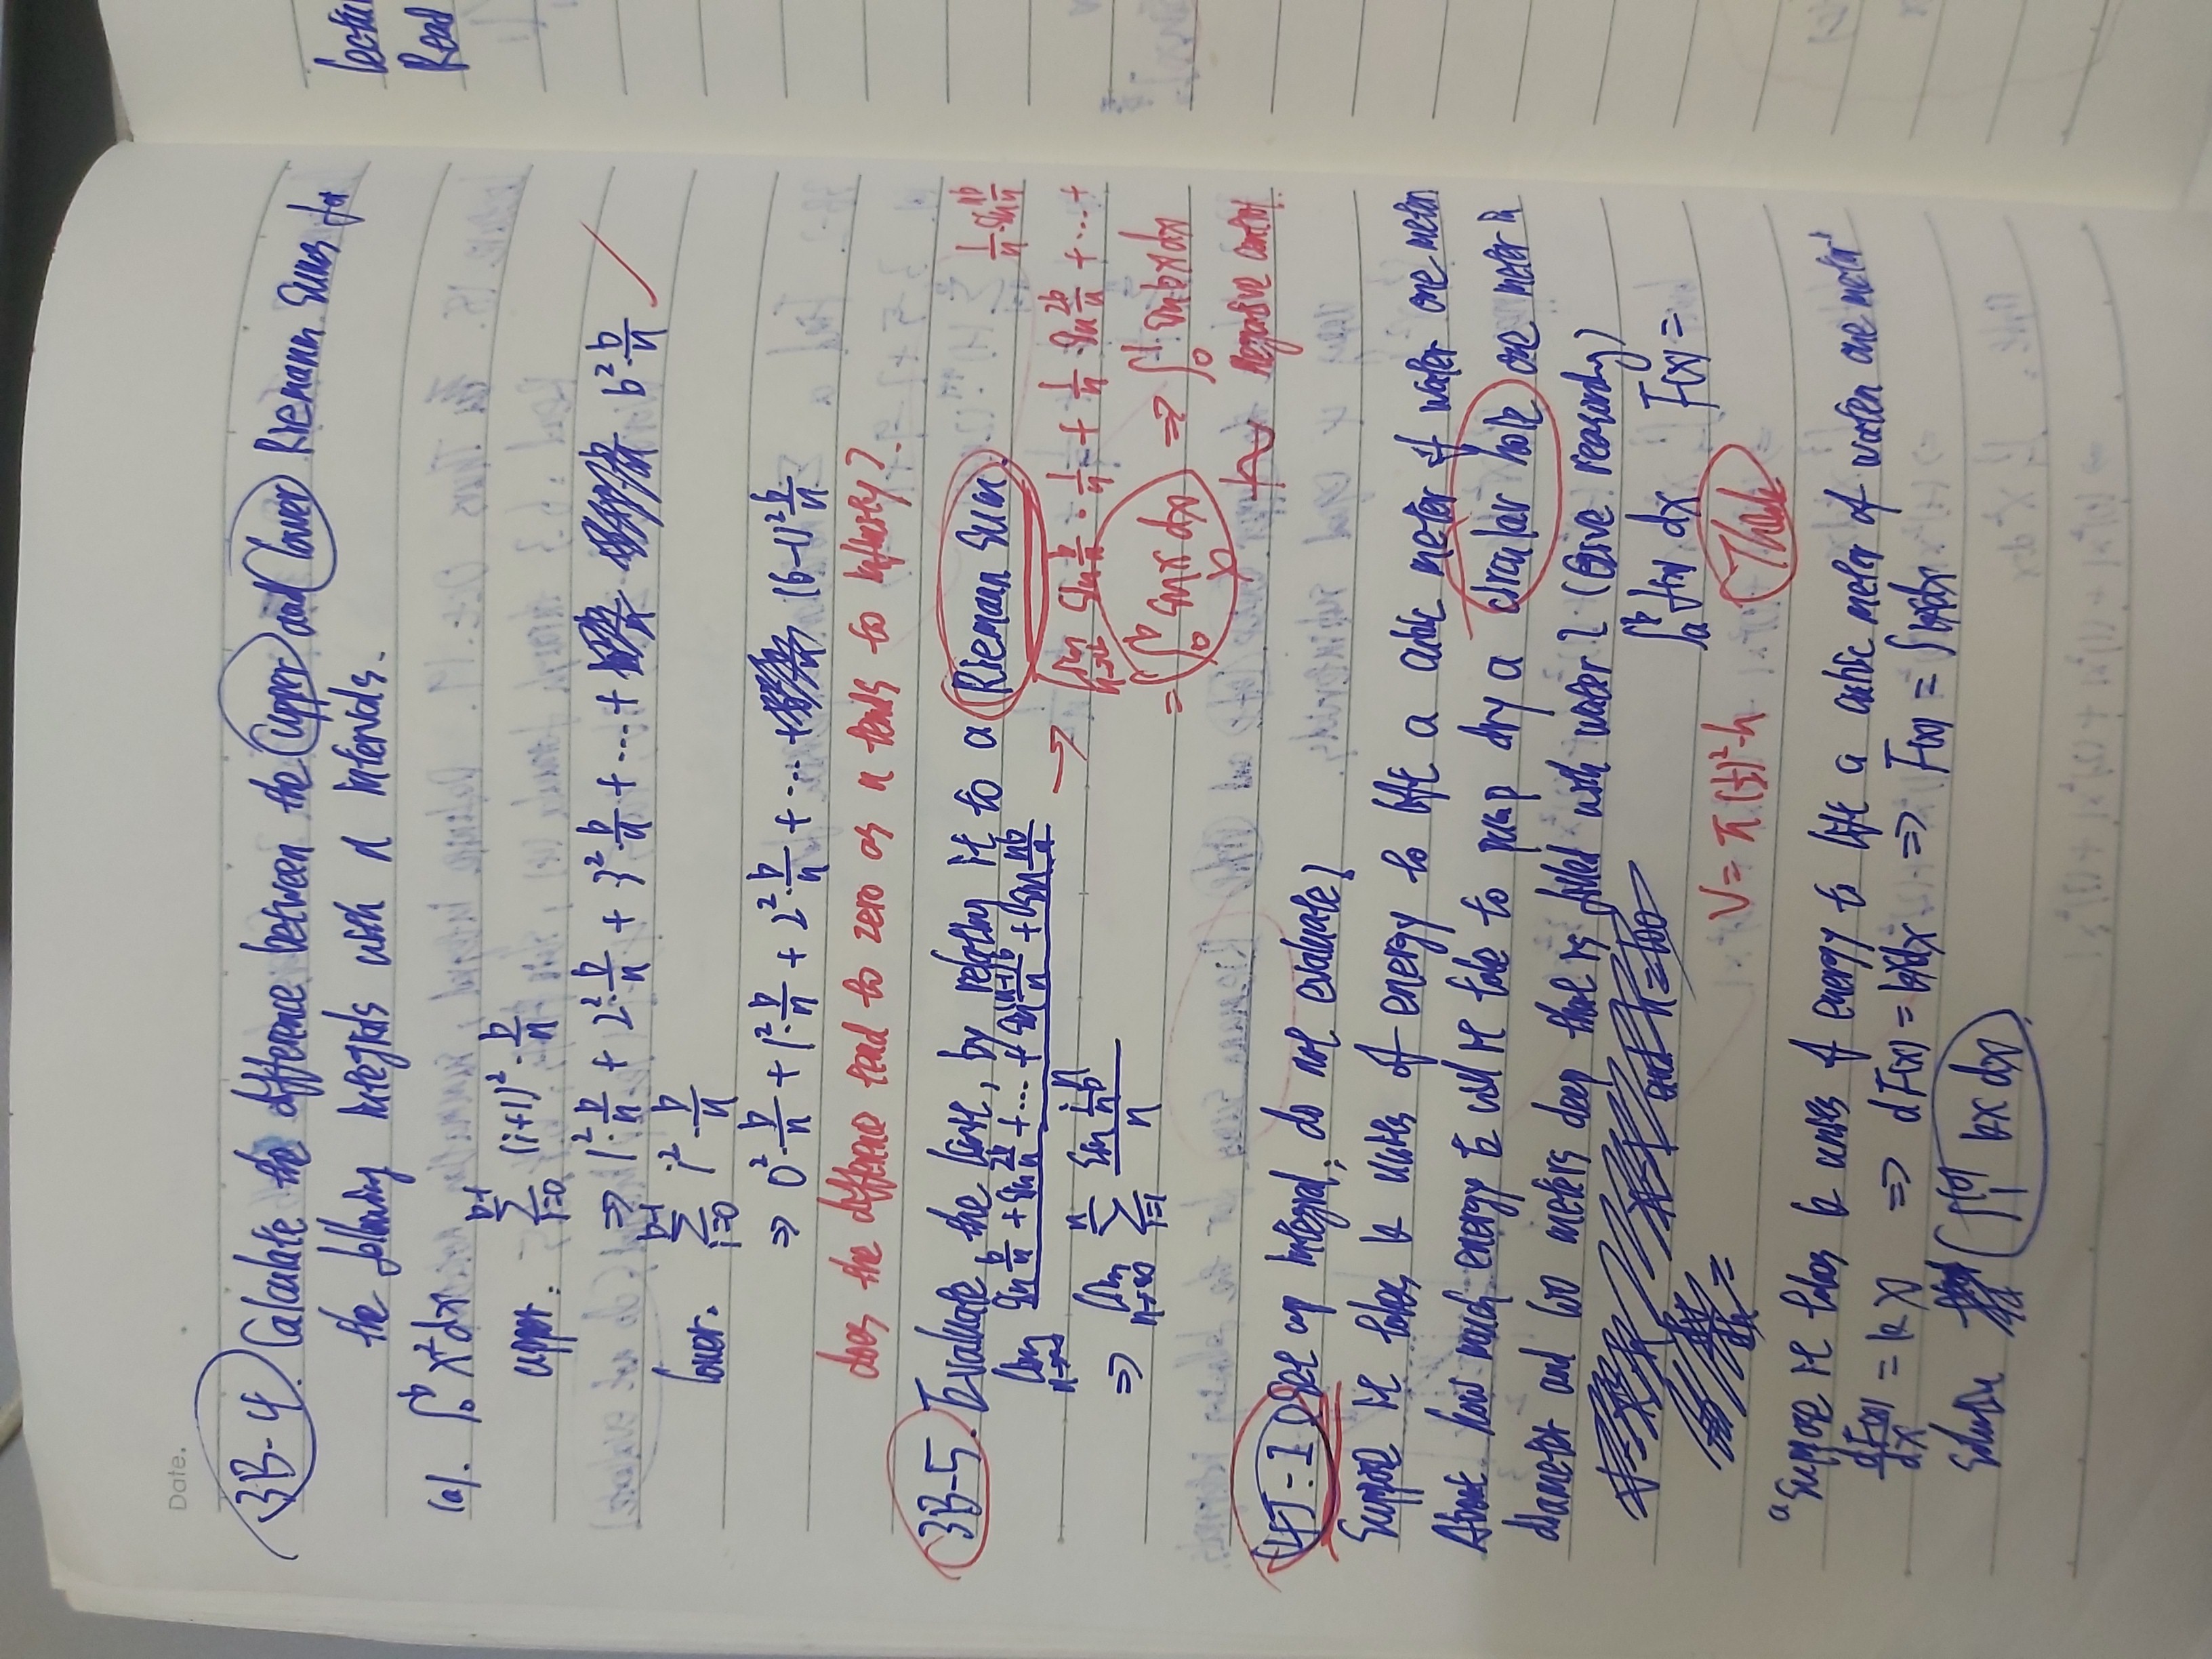 Date.
3B-4. Calculate the difference between the upper and lower Riemann sums for
the following integrals with n intervals.
(a). ∫₀ᵇ x² dx
upper. ∑_{i=0}^{b-1} (i+1)² · b/n
⇒ 1² · b/n + 2² · b/n + 3² · b/n + ... + b² · b/n ✓
lower. ∑_{i=0}^{b-1} i² · b/n
⇒ 0² · b/n + 1² · b/n + 2² · b/n + ... + (b-1)² b/n
does the difference tend to zero as n tends to infinity?
3B-5. Evaluate the limit, by relating it to a Riemann Sum.
1/n · sin nb/n
lim_{n→∞} (sin b/n + sin 2b/n + ... + sin (n-1)b/n + sin nb/n) / n
→ lim_{n→∞} sin b/n · 1/n + 1/n · sin 2b/n + ... +
⇒ lim_{n→∞} ∑_{i=1}^{n} (sin i/n b) / n
= ∫₀ᵇ sin x dx ⇒ ∫₀¹ sin bx dx
Negative control.
4J-1 Set up integral; do not evaluate!
Suppose it takes k units of energy to lift a cubic meter of water one meter.
About how much energy E will it take to pump dry a circular hole one meter in
diameter and 100 meters deep that is filled with water? (Give reasoning)
and h = 100
∫ₐᵇ f(x) dx F(x) =
V = π (1/2)² · h Think
"Suppose it takes k units of energy to lift a cubic meter of water one meter"
dF(x)/dx = kx ⇒ dF(x) = kxdx ⇒ F(x) = ∫kxdx
Solution ∫₁¹⁰⁰ kx dx